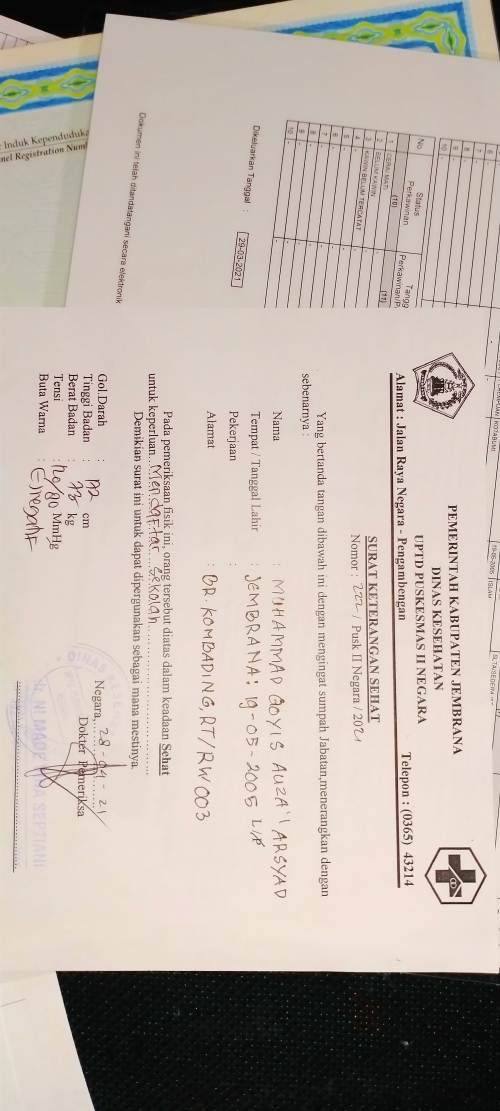 PEMERINTAH KABUPATEN JEMBRANA
DINAS KESEHATAN
UPTD PUSKESMAS II NEGARA
Alamat : Jalan Raya Negara - Pengambengan Telepon : (0365) 43214
SURAT KETERANGAN SEHAT
Nomor : 222 / Pusk II Negara / 2021
Yang bertanda tangan dibawah ini dengan mengingat sumpah Jabatan,menerangkan dengan
sebenarnya :
Nama : MUHAMMAD GOYIS AUZA'I ARSYAD
Tempat / Tanggal Lahir : JEMBRANA : 19-05-2005 L/P
Pekerjaan :
Alamat : BR. KOMBADING, RT/RW 003
Pada pemeriksaan fisik ini, orang tersebut diatas dalam keadaan Sehat
untuk keperluan Mendaftar Sekolah
Demikian surat ini untuk dapat dipergunakan sebagai mana mestinya.
Gol.Darah :
Tinggi Badan : 172 cm
Berat Badan : 73 kg
Tensi : 110/80 MmHg
Buta Warna : (-) negatif
Negara, 28-04-21
Dokter Pemeriksa
No
Status
Perkawinan
(10)
(11)
1 CERAI MATI
2 BELUM KAWIN
3 KAWIN BELUM TERCATAT
4 -
5 -
6 -
7 -
8 -
9 -
10 -
Dikeluarkan Tanggal : 29-03-2021
Dokumen ini telah ditandatangani secara elektronik
Induk Kependuduka
nel Registration Num